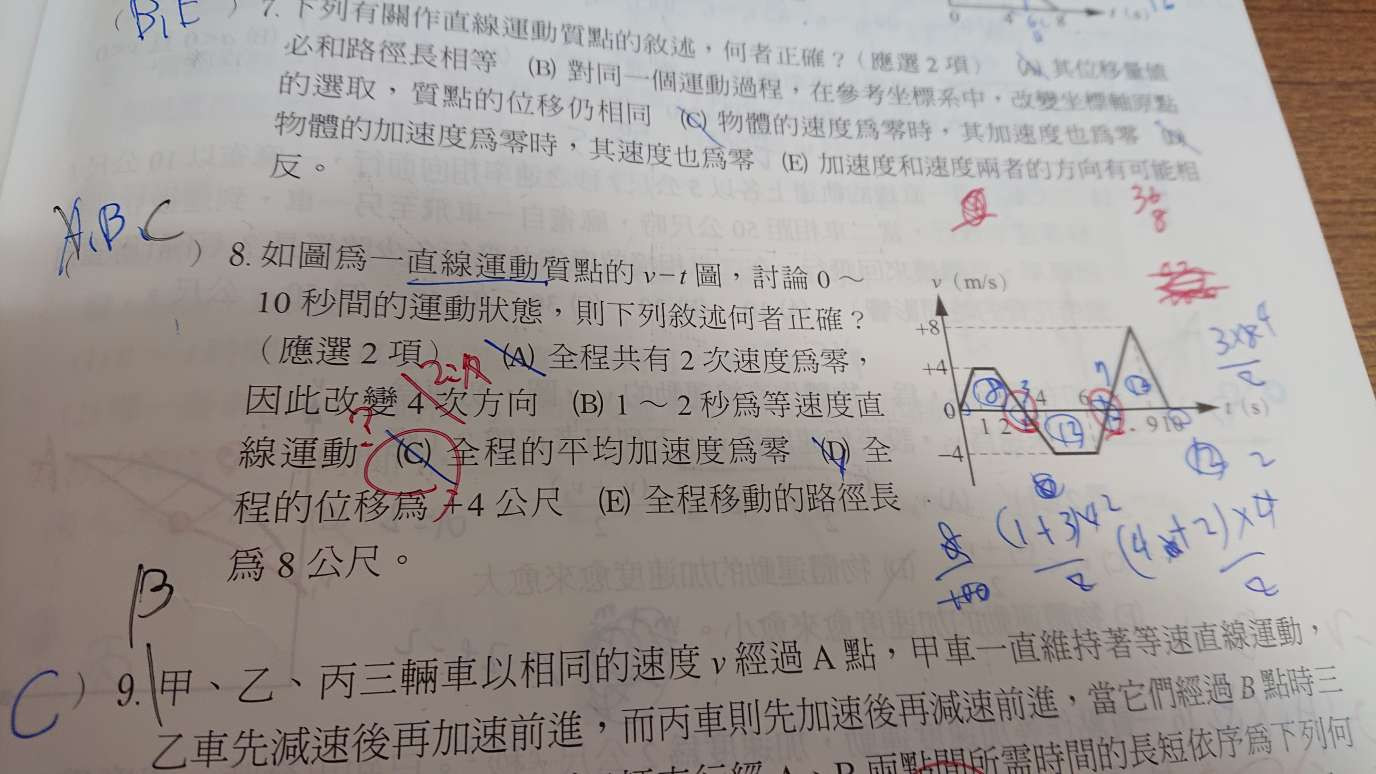 0 4 8 t (s) 16
(B,E ) 7. 下列有關作直線運動質點的敘述，何者正確？（應選 2 項） (A) 其位移量值
必和路徑長相等 (B) 對同一個運動過程，在參考坐標系中，改變坐標軸原點
的選取，質點的位移仍相同 (C) 物體的速度為零時，其加速度也為零 (D)
物體的加速度為零時，其速度也為零 (E) 加速度和速度兩者的方向有可能相
反。
36
8
A,B,C
) 8. 如圖為一直線運動質點的 v－t 圖，討論 0～
10 秒間的運動狀態，則下列敘述何者正確？
（應選 2 項） (A) 全程共有 2 次速度為零，
因此改變 4 次方向 (B) 1～2 秒為等速度直
線運動 (C) 全程的平均加速度為零 (D) 全
程的位移為 +4 公尺 (E) 全程移動的路徑長
為 8 公尺。
v (m/s)
+8
+4
0 1 2 3 4 6 7 9 10 t (s)
-4
8 12 12
3×8 4
2
12 2
(1+3)4 2
2
(4+2)×4
2
B
C ) 9. 甲、乙、丙三輛車以相同的速度 v 經過 A 點，甲車一直維持著等速直線運動，
乙車先減速後再加速前進，而丙車則先加速後再減速前進，當它們經過 B 點時三
A、B 兩點間所需時間的長短依序為下列何